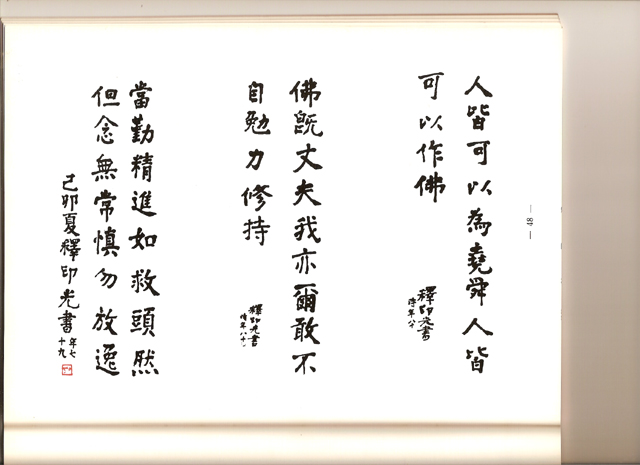 人皆可以為堯舜人皆
可以作佛
釋印光書
時年八十
佛既丈夫我亦爾敢不
自勉力修持
釋印光書
時年八十
當勤精進如救頭然
但念無常慎勿放逸
己卯夏釋印光書
年七
十九
— 48 —